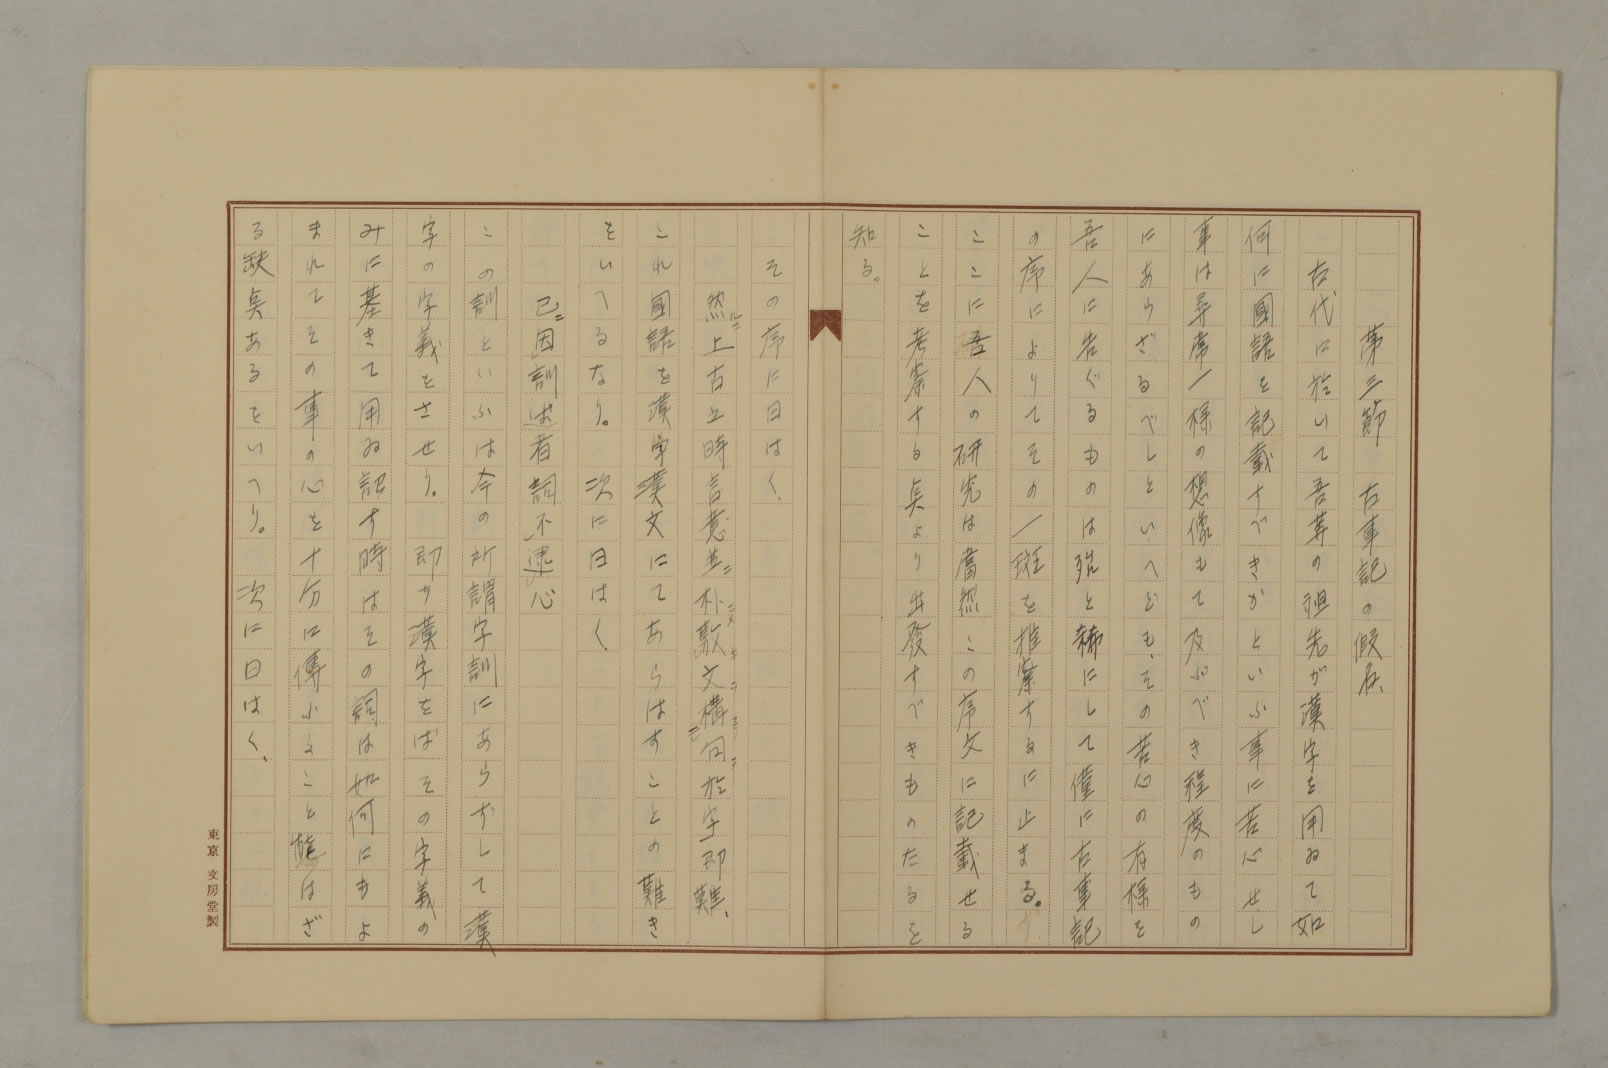 第三節 古事記の假名、
古代に於いて吾等の祖先が漢字を用ゐて如
何に國語を記載すべきかといふ事に苦心せし
事は尋常一様の想像もて及ぶべき程度のもの
にあらざるべしといへども、その苦心の有様を
吾人に告ぐるものは殆と稀にして僅に古事記
の序によりてその一斑を推察するに止まる。
ここに吾人の研究は當然この序文に記載せる
ことを考察する点より出發すべきものたるを
知る。
その序に曰はく、
然ルニ上古之時言意並ニ朴ニメ敷キ文ヲ構フルコト句ヲ於字即難、
これ國語を漢字漢文にてあらはすことの難き
をいへるなり。次に曰はく
已ニ因訓述者詞不逮心
この訓といふは今の所謂字訓にあらずして漢
字の字義をさせり。即ち漢字をばその字義の
みに基きて用ゐ記す時はその詞は如何にもよ
まれてその事の心を十分に傳ふること能はざ
る缺点あるをいへり。次に曰はく、
東京 文房堂製